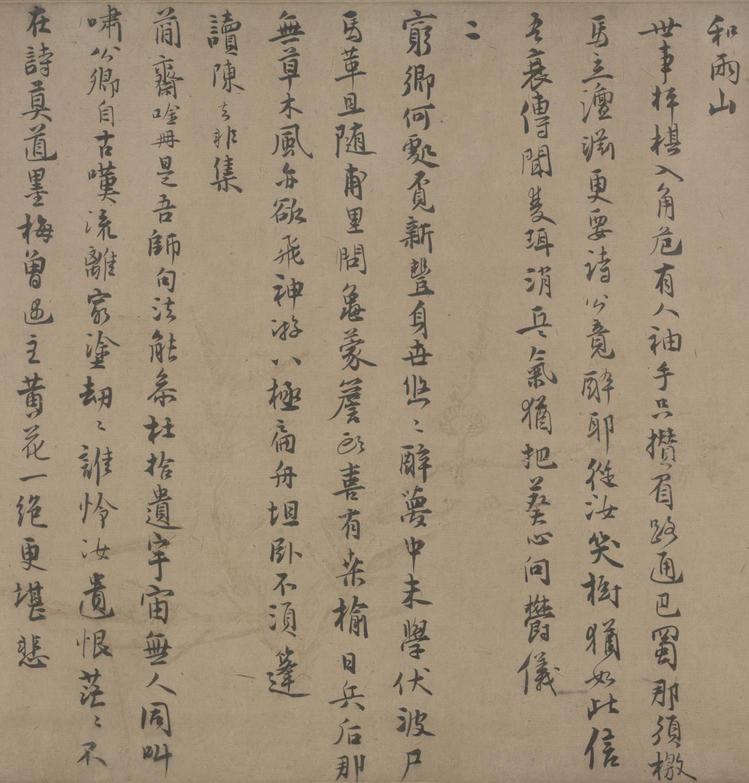 和兩山
世事枰棋入角危有人袖手只攢眉路通巴蜀那須檄
馬立澶淵更要詩公竟醉耶從汝笑樹猶如此信
吾衰傳聞隻珥消兵氣猶把葵心問鬱儀
二
窮鄉何處覓新豐身世悠〻醉夢中未學伏波尸
馬革且隨甫里問龜蒙簷頭喜有桑榆日兵后那
無草木風亦欲飛神游八極扁舟坦臥不須篷
讀陳去非集
簡齋吟冊是吾師句法能參杜拾遺宇宙無人同叫
嘯公卿自古嘆流離家塗劫〻誰憐汝遺恨茫〻不
在詩莫道墨梅曾遇主黃花一絕更堪悲